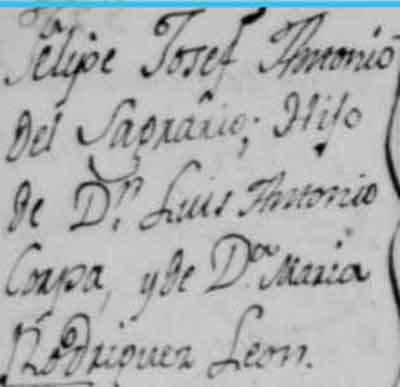 Felipe Josef Antonio
del Sagrario; Hijo
de Dn. Luis Antonio
Corpa, y de Da. Maria
Rodriguez Leon.